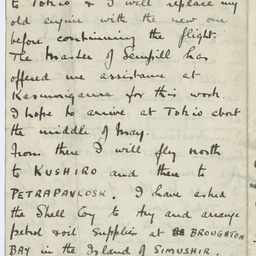 to Tokio & I will replace my
old engine with the new one
before continuing the flight.
The Master of Sempill has
offered me assistance at
Kasumigaura for this work.
I hope to arrive at Tokio about
the middle of May.
From there I will fly north
to KUSHIRO and then to
PETRAPAVLOSK. I have asked
the Shell Coy to try and arrange
petrol & oil supplies at BROUGHTON
BAY in the Island of SIMUSHIR.